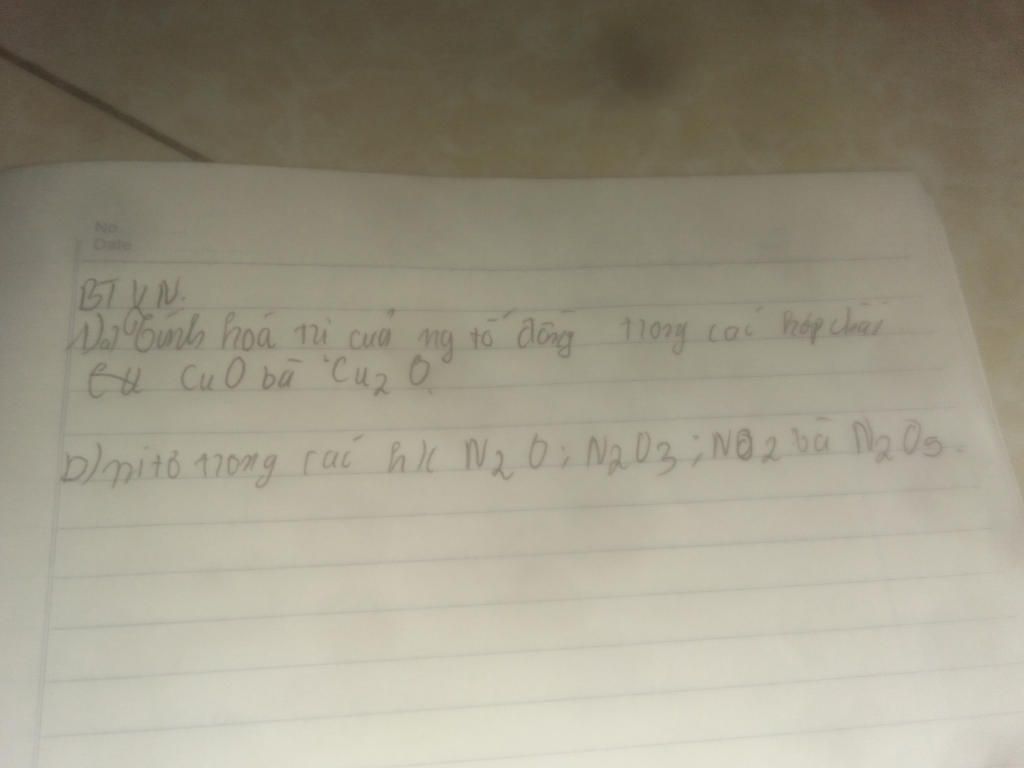 No.
Date
BTVN.
hoá trị của ng tố đồng trong các hợp chất
CuO và Cu₂O.
b) nitơ trong các h/c N₂O; N₂O₃; NO₂ và N₂O₅.